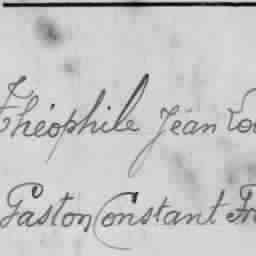 Théophile Jean
Gaston Constant